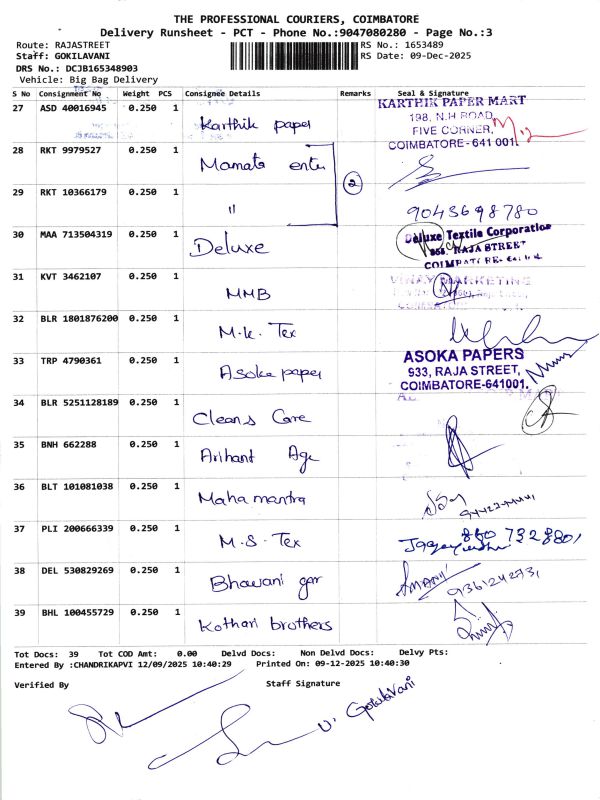 THE PROFESSIONAL COURIERS, COIMBATORE
Delivery Runsheet - PCT - Phone No.:9047080280 - Page No.:3
Route: RAJASTREET RS No.: 1653489
Staff: GOKILAVANI RS Date: 09-Dec-2025
DRS No.: DCJB165348903
Vehicle: Big Bag Delivery
S No Consignment No Weight PCS Consignee Details Remarks Seal & Signature
27 ASD 40016945 0.250 1 Karthik paper KARTHIK PAPER MART
198, N.H ROAD,
FIVE CORNER,
COIMBATORE - 641 001.
28 RKT 9979527 0.250 1 Mamata enter
2
29 RKT 10366179 0.250 1 "
9043698780
30 MAA 713504319 0.250 1 Deluxe Deluxe Textile Corporation
RAJA STREET
31 KVT 3462107 0.250 1 MMB VINAY MARKETING
32 BLR 1801876200 0.250 1 M.k. Tex
33 TRP 4790361 0.250 1 Asoka paper ASOKA PAPERS
933, RAJA STREET,
COIMBATORE-641001.
34 BLR 5251128189 0.250 1 Cleans Care
35 BNH 662288 0.250 1 Arihant Age
36 BLT 101081038 0.250 1 Maha mantra
37 PLI 200666339 0.250 1 M.S. Tex
38 DEL 530829269 0.250 1 Bhawani gar
39 BHL 100455729 0.250 1 Kothari brothers
Tot Docs: 39 Tot COD Amt: 0.00 Delvd Docs: Non Delvd Docs: Delvy Pts:
Entered By :CHANDRIKAPVI 12/09/2025 10:40:29 Printed On: 09-12-2025 10:40:30
Verified By Staff Signature
V. GokilaVani